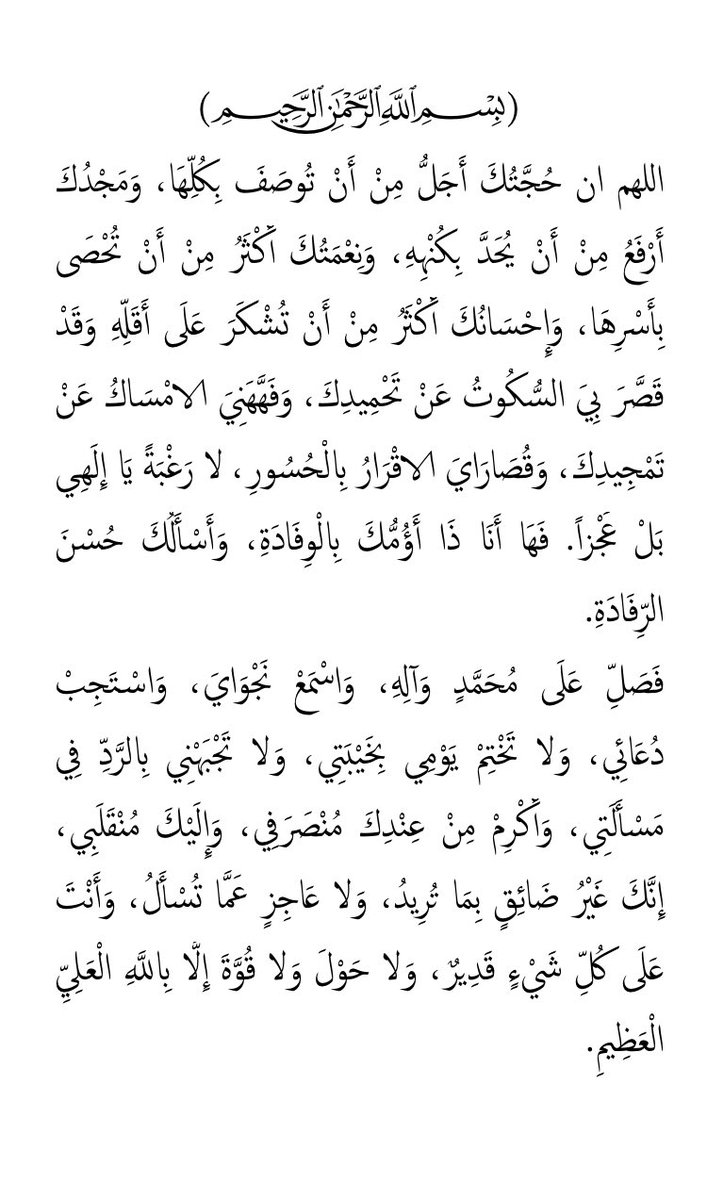 (بِسْمِ ٱللَّهِ ٱلرَّحْمَٰنِ ٱلرَّحِيمِ)
اللهم ان حُجَّتُكَ أَجَلُّ مِنْ أَنْ تُوصَفَ بِكُلِّهَا، وَمَجْدُكَ
أَرْفَعُ مِنْ أَنْ يُحَدَّ بِكُنْهِهِ، وَنِعْمَتُكَ أَكْثَرُ مِنْ أَنْ تُحْصَى
بِأَسْرِهَا، وَإِحْسَانُكَ أَكْثَرُ مِنْ أَنْ تُشْكَرَ عَلَى أَقَلِّهِ وَقَدْ
قَصَّرَ بِيَ السُّكُوتُ عَنْ تَحْمِيدِكَ، وَفَهَّهَنِيَ الامْسَاكُ عَنْ
تَمْجِيدِكَ، وَقُصَارَايَ الاقْرَارُ بِالْحُسُورِ، لا رَغْبَةً يَا إِلَهِي
بَلْ عَجْزاً. فَهَا أَنَا ذَا أَؤُمُّكَ بِالْوِفَادَةِ، وَأَسْأَلُكَ حُسْنَ
الرِّفَادَةِ.
فَصَلِّ عَلَى مُحَمَّدٍ وَآلِهِ، وَاسْمَعْ نَجْوَايَ، وَاسْتَجِبْ
دُعَائِي، وَلا تَخْتِمْ يَوْمِي بِخَيْبَتِي، وَلا تَجْبَهْنِي بِالرَّدِّ فِي
مَسْأَلَتِي، وَأَكْرِمْ مِنْ عِنْدِكَ مُنْصَرَفِي، وَإِلَيْكَ مُنْقَلَبِي،
إِنَّكَ غَيْرُ ضَائِقٍ بِمَا تُرِيدُ، وَلا عَاجِزٍ عَمَّا تُسْأَلُ، وَأَنْتَ
عَلَى كُلِّ شَيْءٍ قَدِيرٌ، وَلا حَوْلَ وَلا قُوَّةَ إِلّا بِاللَّهِ الْعَلِيِّ
الْعَظِيمِ.